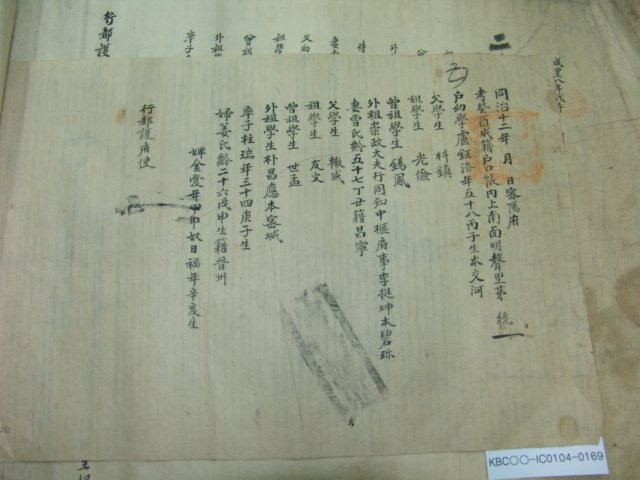 同治十二年 月 日密陽府
考癸酉成籍户口帳內上南面明聲里第 統
户幼學盧鉦洛年五十八丙子生本交河
父學生 鎮
祖學生 光儉
曾祖學生 錫鳳
外祖崇政大夫行同知中樞府事李挺坤本碧珍
妻曺氏齡五十七丁丑籍昌寧
父學生 轍成
祖學生 友文
曾祖學生 世孟
外祖學生朴昌應本密城
率子柱瑞年三十四庚子生
婦姜氏齡二十六戊申生籍晋州
婢金愛年甲申奴日福年辛亥生
行都護府使
咸豊八年戊午
二
行都護
率子
外祖
曾祖
祖學
父幼
妻
KBC○○-IC0104-0169